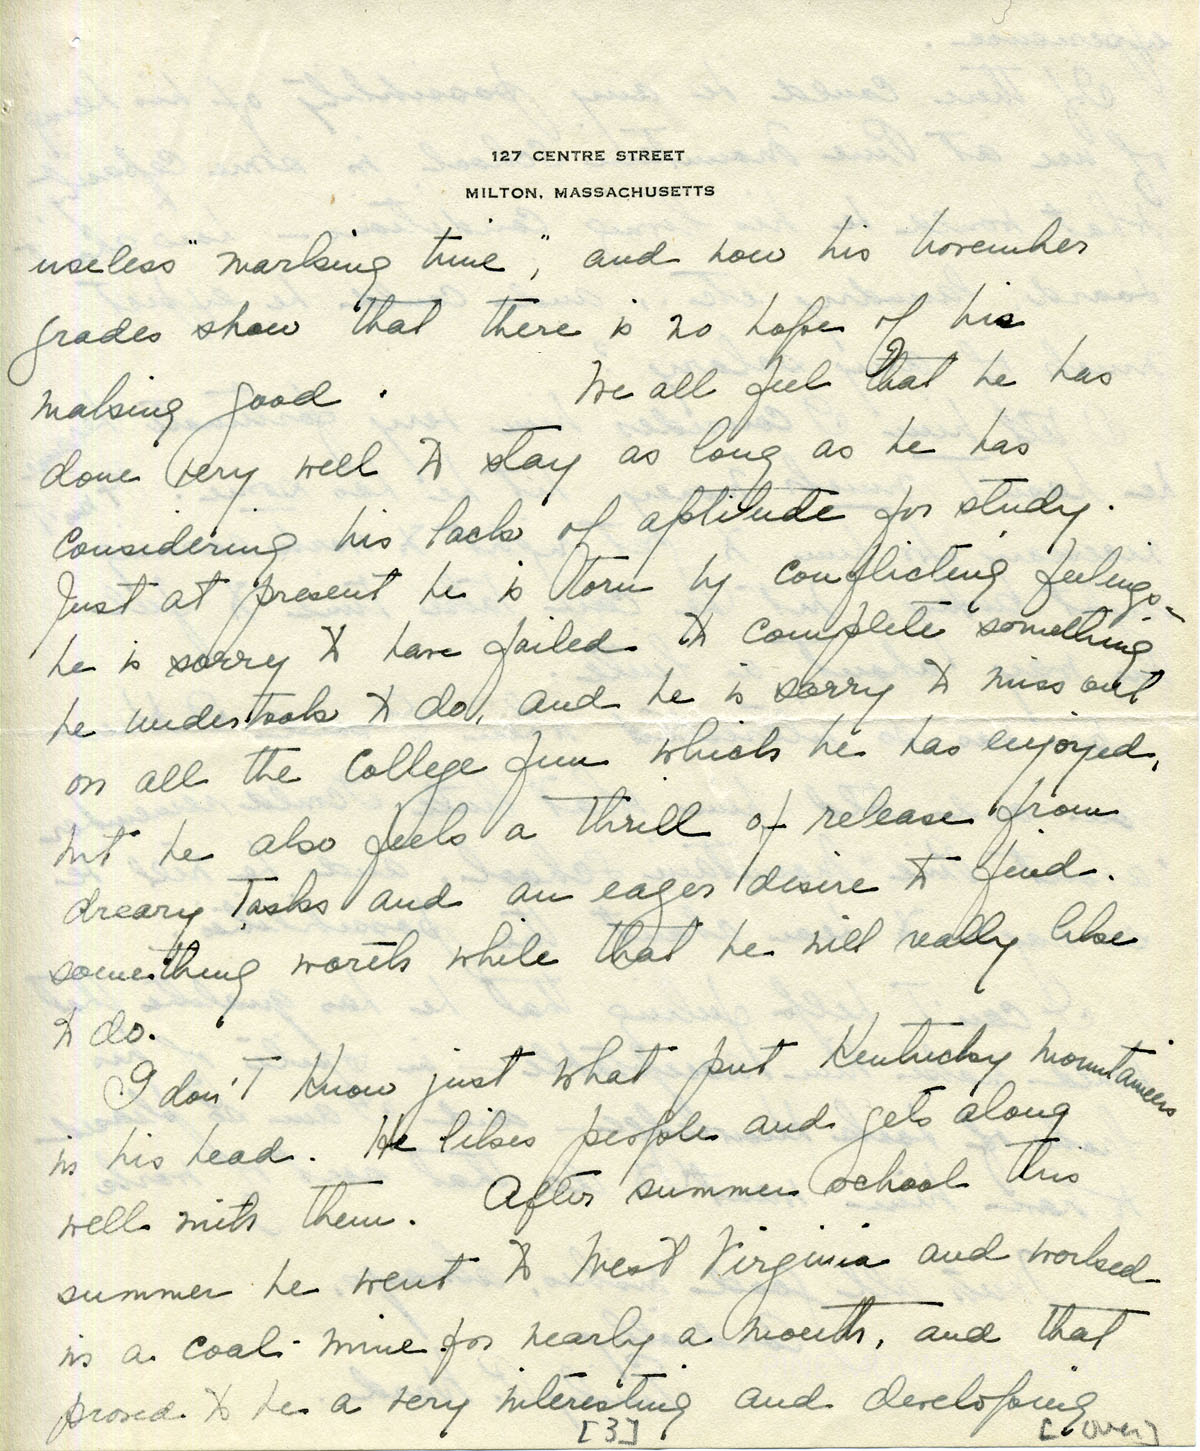 127 CENTRE STREET
MILTON, MASSACHUSETTS
useless "marking time", and now his november
grades show that there is no hope of his
making good. We all feel that he has
done very well to stay as long as he has
considering his lack of aptitude for study.
Just at present he is torn by conflicting feelings -
he is sorry to have failed to complete something
he undertook to do, and he is sorry to miss out
on all the college fun which he has enjoyed,
but he also feels a thrill of release from
dreary tasks and an eager desire to find
something worth while that he will really like
to do.
I don't know just what put Kentucky mountaineers
in his head. He likes people and gets along
well with them. After summer school this
summer he went to West Virginia and worked
in a coal-mine for nearly a month, and that
proved to be a very interesting and developing
[3] [over]